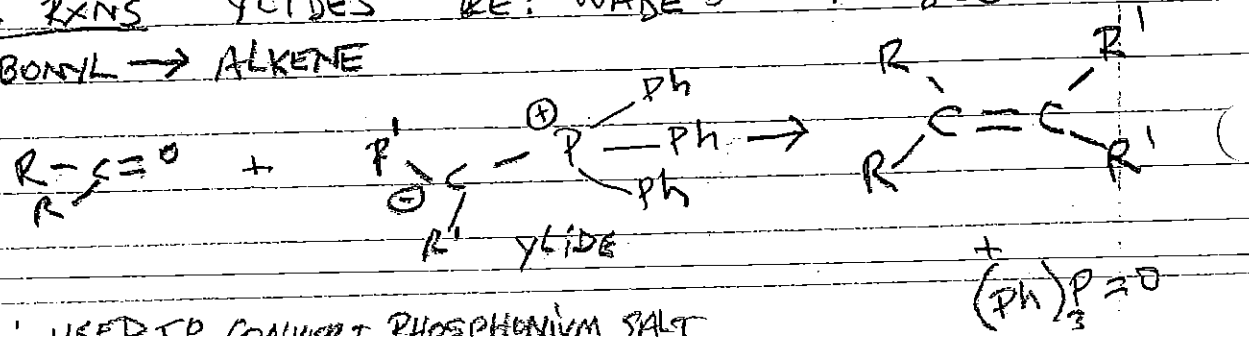 RXNS YLIDES RE: WADE
BONYL → ALKENE
R R'
⊕ Ph
R-C=O + R' C - P - Ph → C=C
R ⊖ Ph R R'
R' YLIDE
+
(Ph)3P=O
USED TO CONVERT PHOSPHONIUM SALT